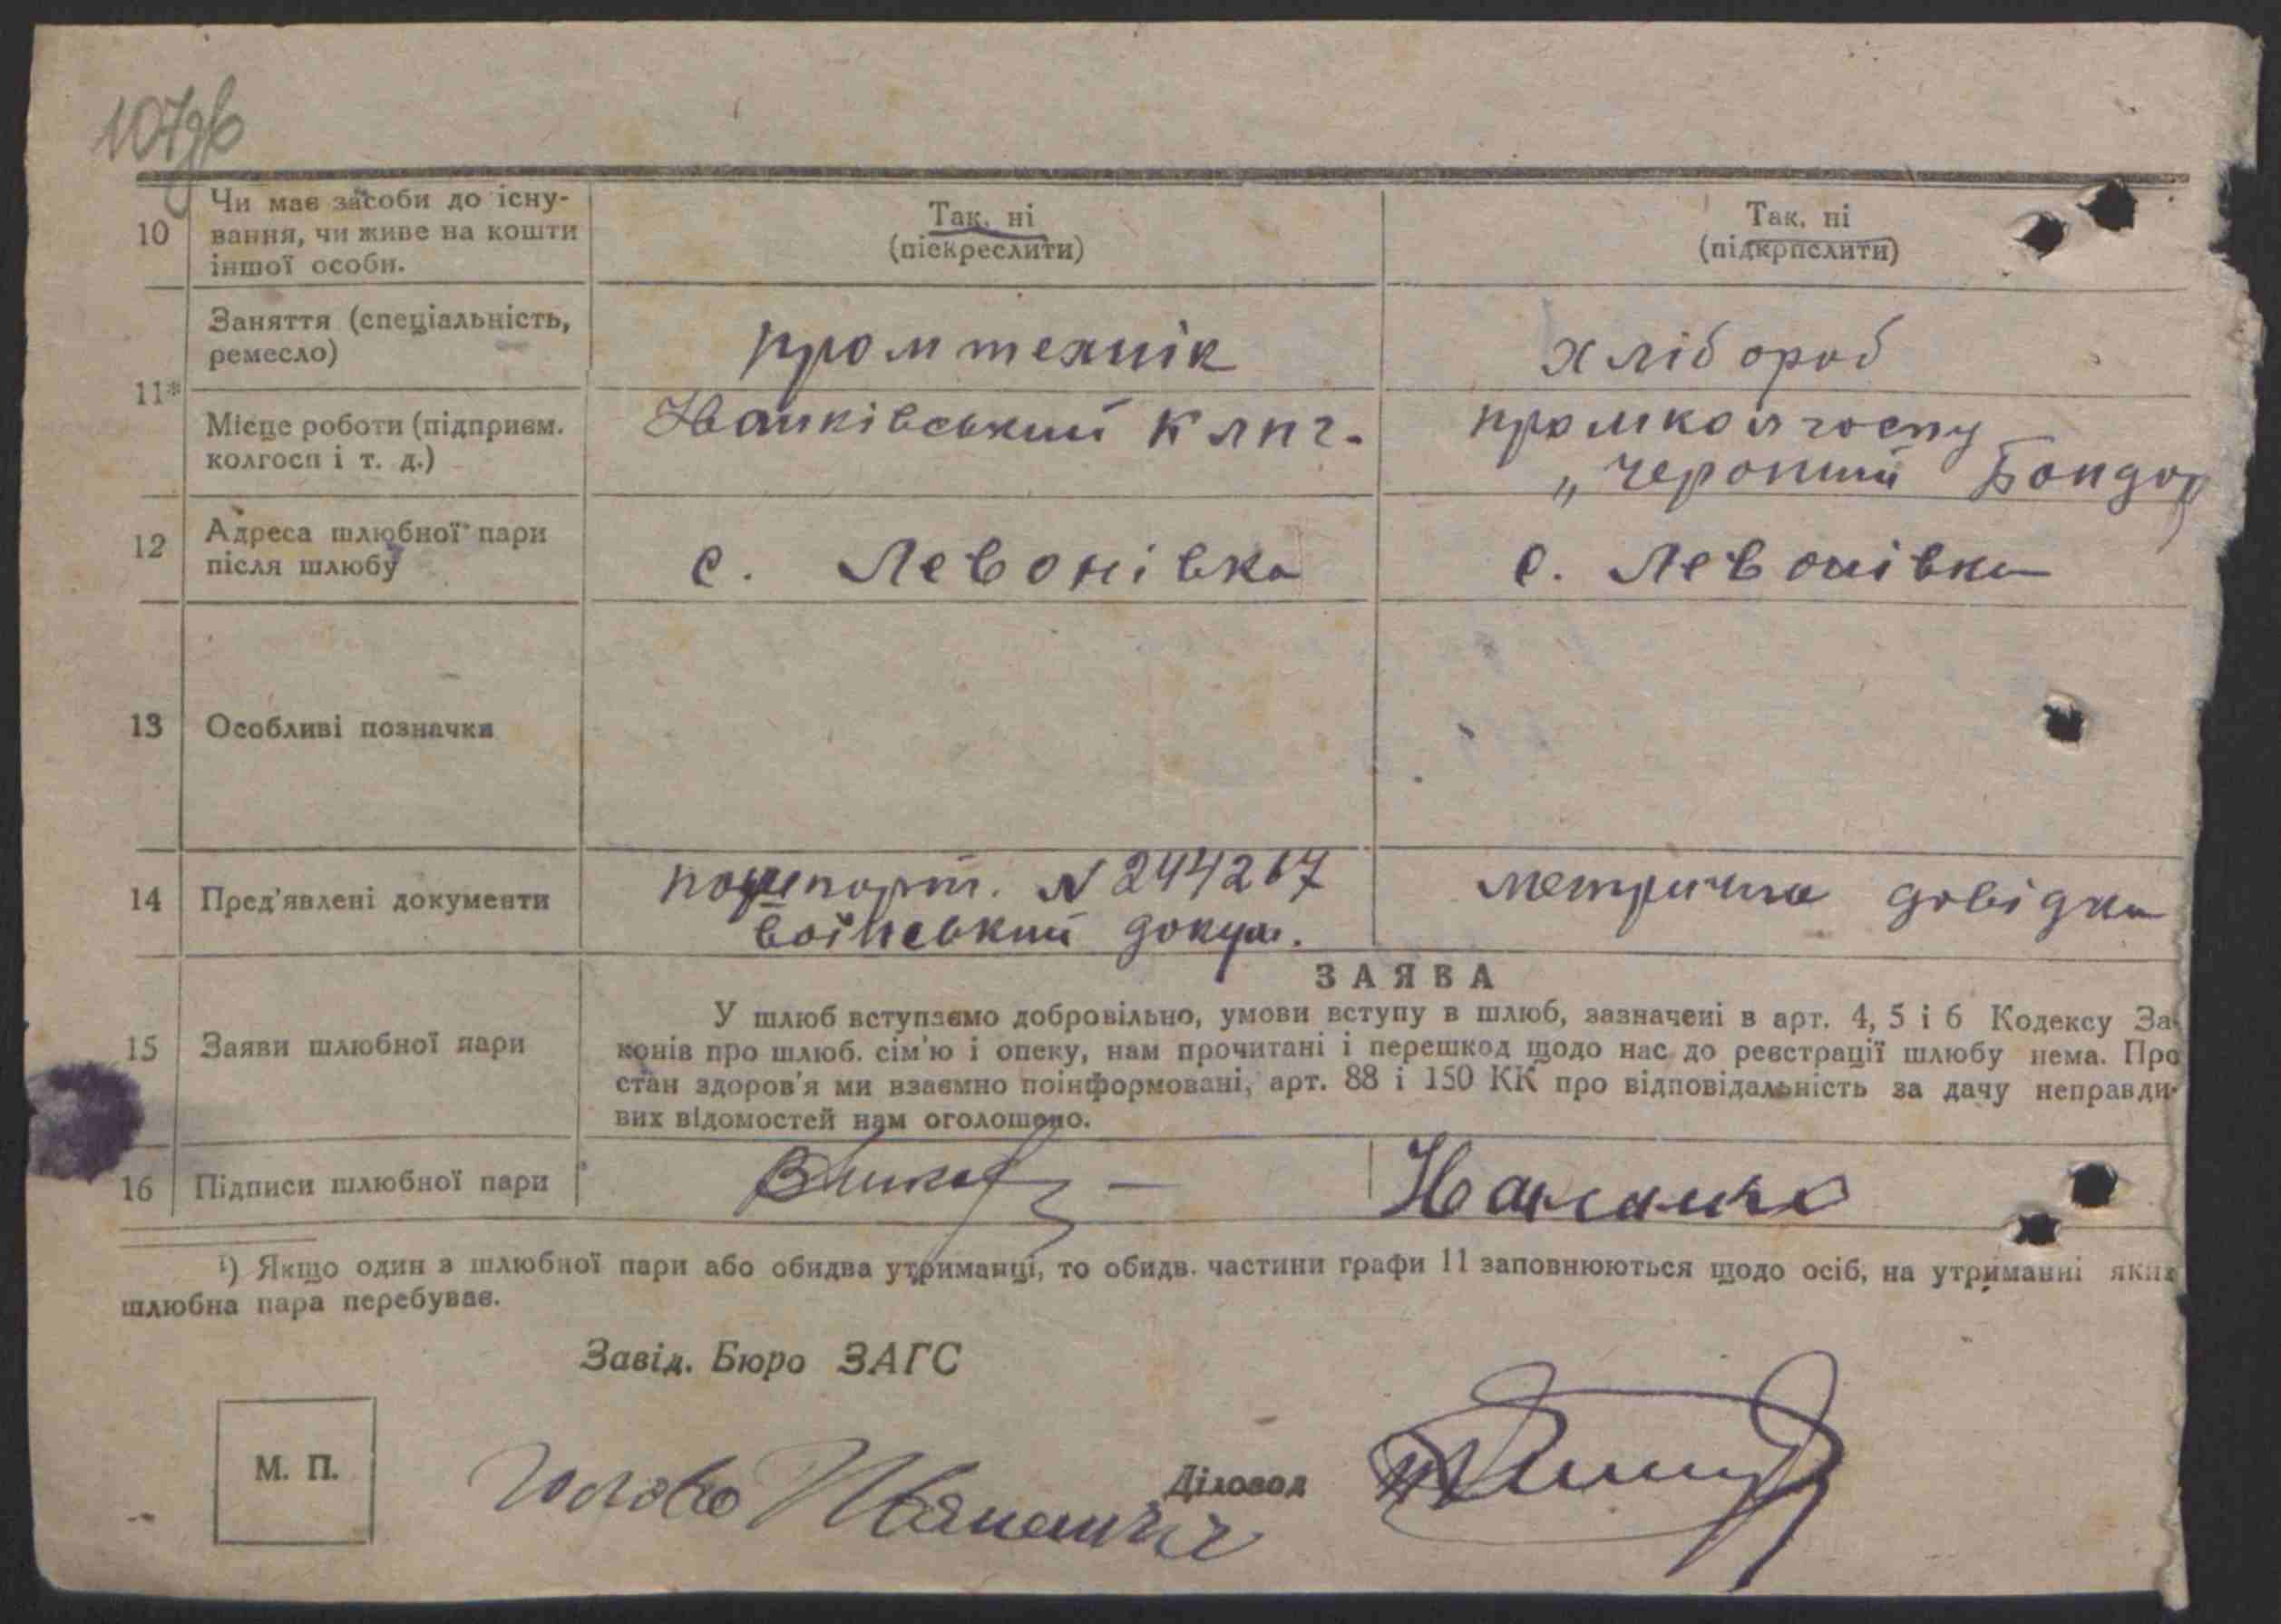 107зв
10 Чи має засоби до існу-
вання, чи живе на кошти
іншої особи.
Так, ні
(піекреслити)
Так, ні
(підкрпслити)
11* Заняття (спеціальність,
ремесло)
промтехнік
хлібороб
Місце роботи (підприєм.
колгосп і т. д.)
Іванківський клпг.
промколгоспу
„Черонний Бондар
12 Адреса шлюбної пари
після шлюбу
с. Левонівка
с. Левонівка
13 Особливі позначки
14 Пред'явлені документи
пошпорт. N 244267
воїнський докум.
метрична довідка
15 Заяви шлюбної пари
ЗАЯВА
У шлюб вступаємо добровільно, умови вступу в шлюб, зазначені в арт. 4, 5 і 6 Кодексу За-
конів про шлюб. сім'ю і опеку, нам прочитані і перешкод щодо нас до реєстрації шлюбу нема. Про
стан здоров'я ми взаємно поінформовані, арт. 88 і 150 КК про відповідальність за дачу неправди-
вих відомостей нам оголошено.
16 Підписи шлюбної пари
¹) Якщо один з шлюбної пари або обидва утриманці, то обидв. частини графи 11 заповнюються щодо осіб, на утриманні яких
шлюбна пара перебуває.
Завід. Бюро ЗАГС
М. П.
Голова
Діловод